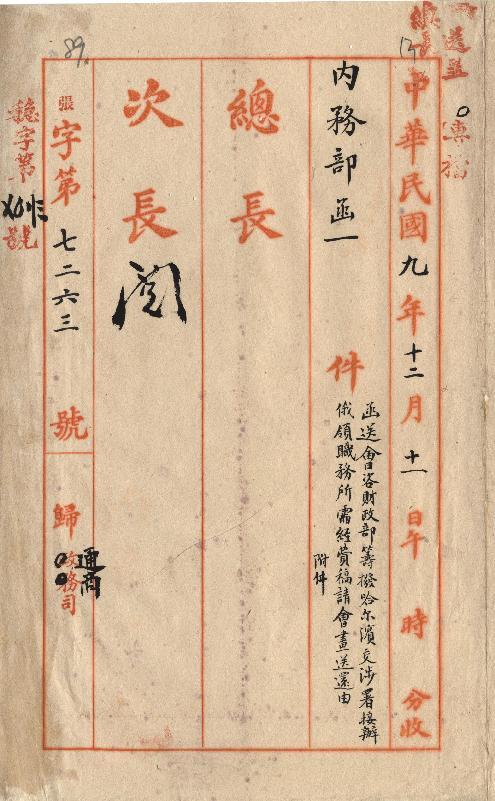 送並
總長
17
傳稿
中華民國九年十二月十一日午時分收
內務部函一件
函送會咨財政部籌撥哈爾濱交涉署接辦
俄領職務所需經費稿請會畫送還由
附件
總長
次長閱
89
張字第七二六三號
歸政務司
通商
字第
號